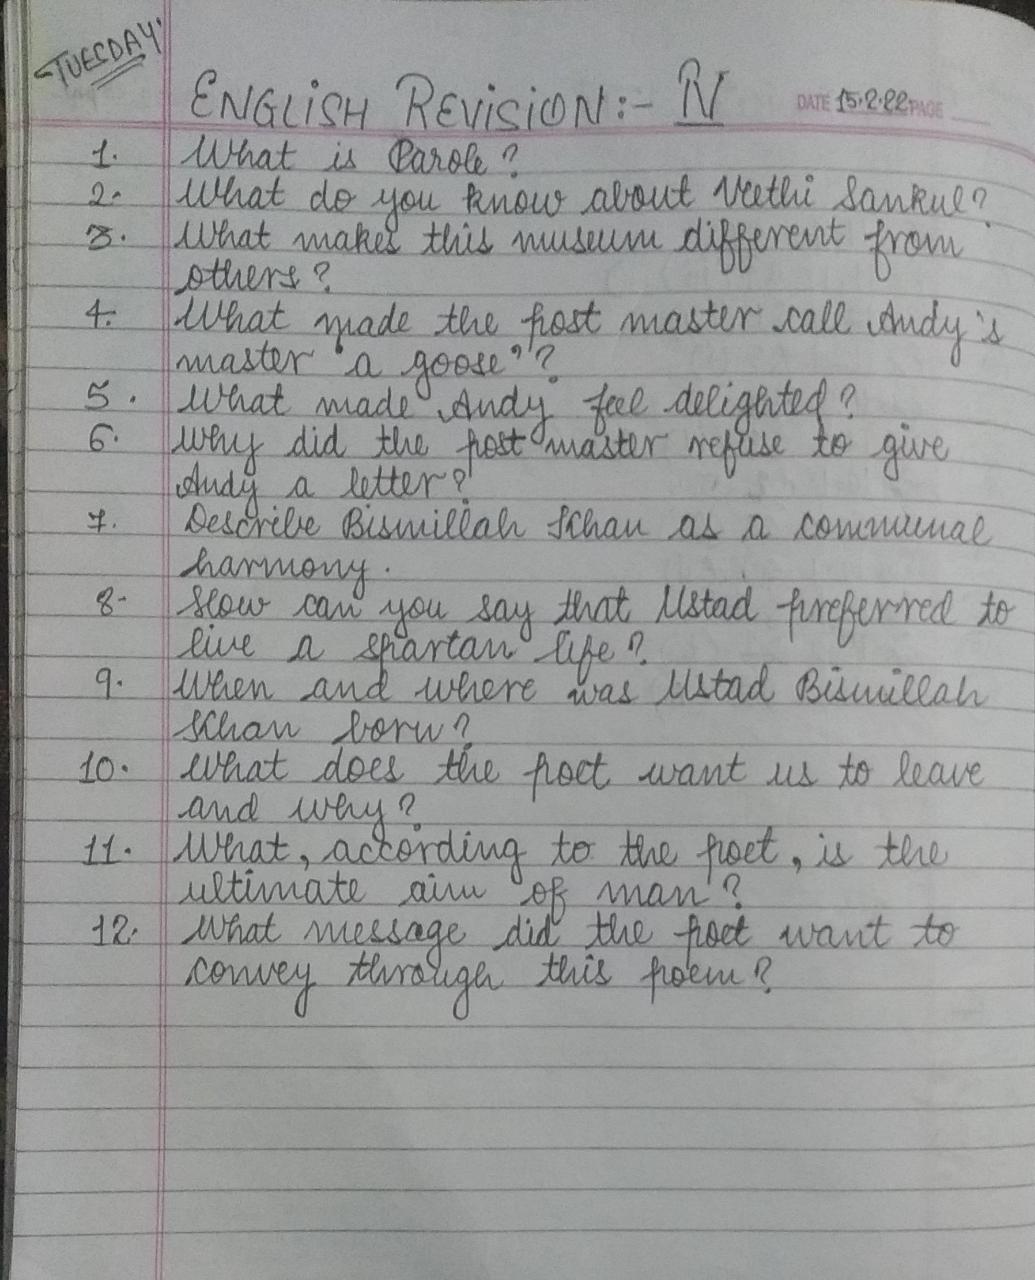 TUESDAY
ENGLISH REVISION:- IV DATE 15.2.22 PAGE
1. What is Parole?
2. What do you know about Veethi Sankul?
3. What makes this museum different from
others?
4. What made the post master call Andy's
master "a goose"?
5. What made Andy feel delighted?
6. Why did the post master refuse to give
Andy a letter?
7. Describe Bismillah Khan as a communal
harmony.
8. How can you say that Ustad preferred to
live a spartan life?
9. When and where was Ustad Bismillah
Khan born?
10. What does the poet want us to leave
and why?
11. What, according to the poet, is the
ultimate aim of man?
12. What message did the poet want to
convey through this poem?